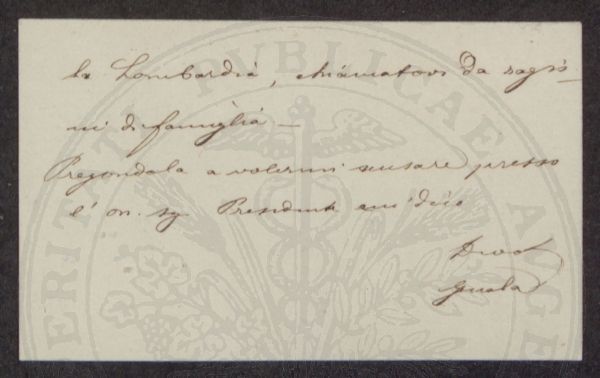 la Lombardia, chiamatovi da ragio-
ni di famiglia —
Pregandola a volermi scusare presso
l'on. sig Presidente mi dico
Devot
Guala
PUBLICAE